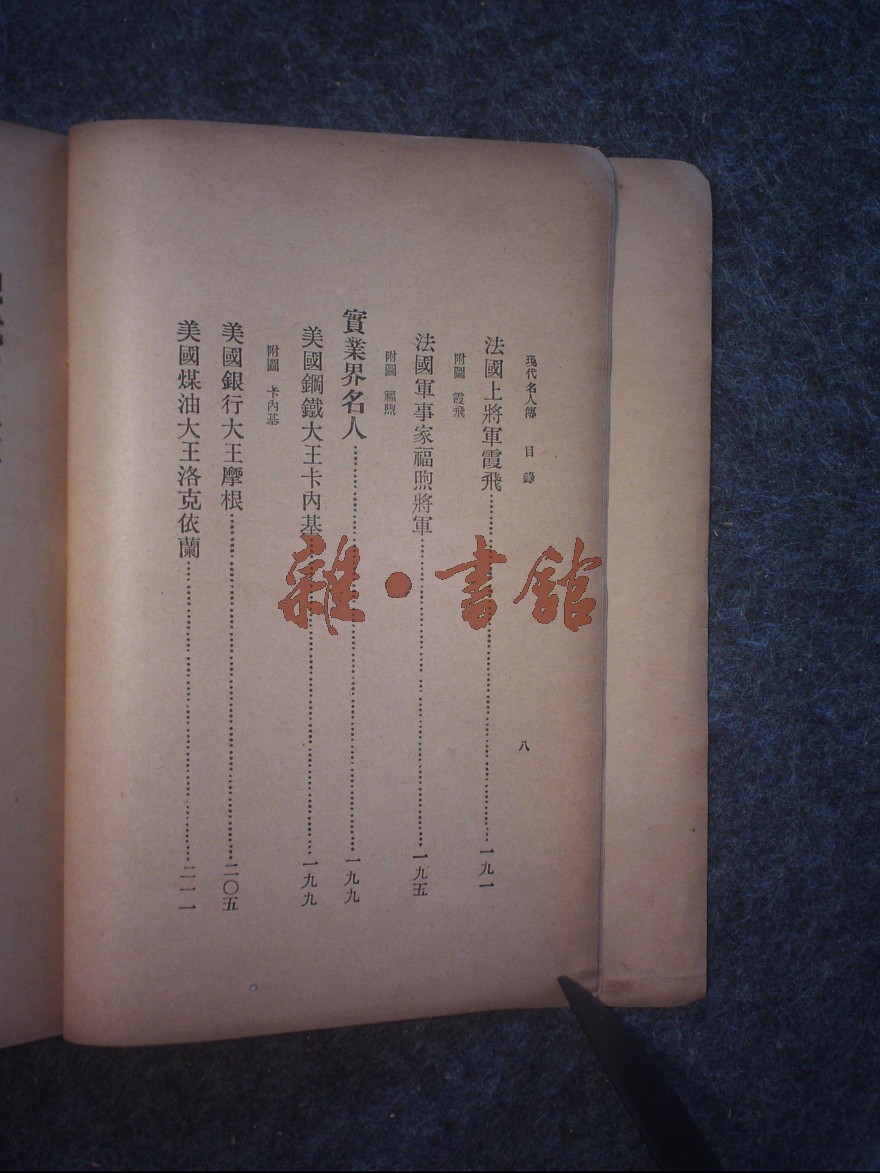 現代名人傳 目錄 八
法國上將軍霞飛 一九一
附圖 霞飛
法國軍事家福煦將軍 一九五
附圖 福煦
實業界名人 一九九
美國鋼鐵大王卡內基 一九九
附圖 卡內基
美國銀行大王摩根 二〇五
美國煤油大王洛克依蘭 二一一
雜·書館